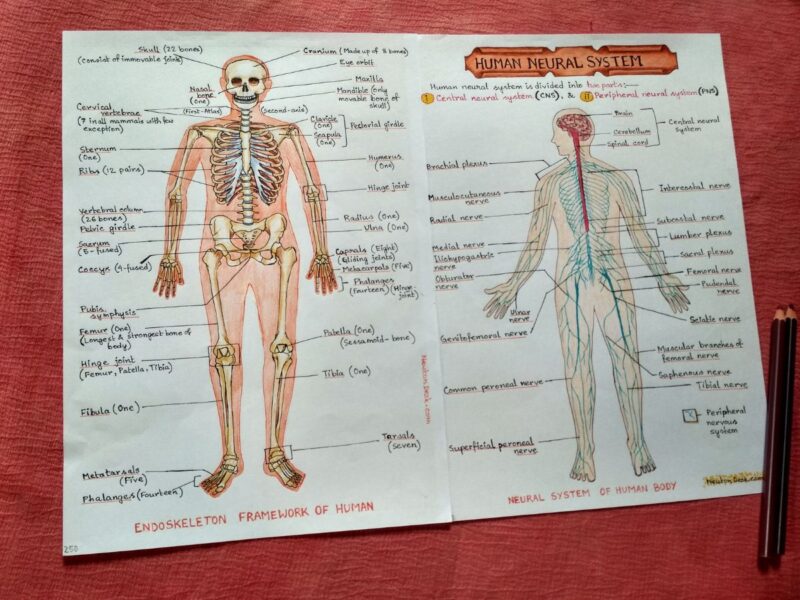 Skull (22 bones)
(consist of immovable joint)
Nasal
bone
(One)
Cervical
vertebrae
(First-Atlas)
(second-axis)
(7 in all mammals with few
exception)
Sternum
(One)
Ribs (12 pairs)
Vertebral column
(26 bones)
Pelvic girdle
Sacrum
(5-fused)
Coccyx (4-fused)
Pubis
symphysis
Femur (One)
(Longest & strongest bone of
body)
Hinge joint
(Femur, Patella, Tibia)
Fibula (One)
Metatarsals
(Five)
Phalanges (Fourteen)
Cranium (Made up of 8 bones)
Eye orbit
Maxilla
Mandible (only
movable bone of
skull)
Clavicle
(One)
Scapula
(One)
Pectorial girdle
Humerus
(One)
Hinge joint
Radius (One)
Ulna (One)
Carpals (Eight)
(Gliding joints)
Metacarpals (Five)
Phalanges
(Fourteen) (Hinge
joint)
Patella (One)
(Sessamoid-bone)
Tibia (One)
Tarsals
(Seven)
NewtonDesk.com
ENDOSKELETON FRAMEWORK OF HUMAN
250
HUMAN NEURAL SYSTEM
Human neural system is divided into two parts:—
I Central neural system (CNS), & II Peripheral neural system (PNS)
Brain
Cerebellum
Spinal cord
Central neural
system
Brachial plexus
Musculocutaneous
nerve
Radial nerve
Medial nerve
Iliohypogastric
nerve
Obturator
nerve
Ulnar
nerve
Genitofemoral nerve
Common peroneal nerve
Superficial peroneal
nerve
Intercostal nerve
Subcostal nerve
Lumber plexus
Sacral plexus
Femoral nerve
Pudendal
nerve
Sciatic nerve
Muscular branches of
femoral nerve
Saphenous nerve
Tibial nerve
Peripheral
nervous
system
NewtonDesk.com
NEURAL SYSTEM OF HUMAN BODY